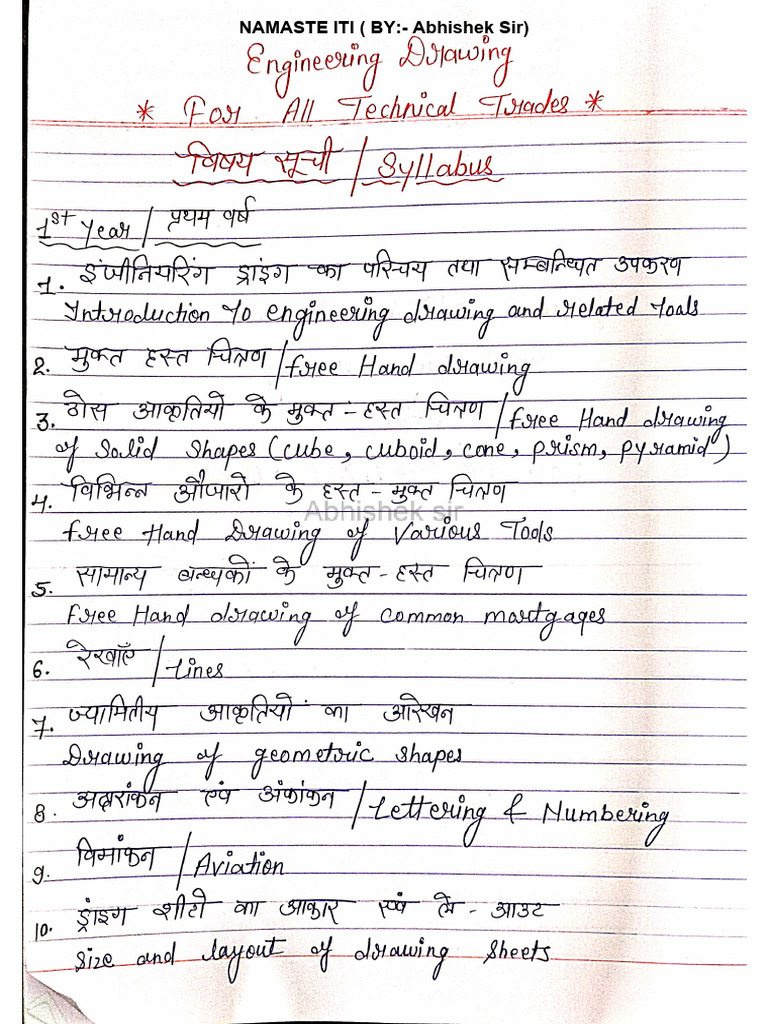 NAMASTE ITI ( BY:- Abhishek Sir)
Engineering Drawing
* For All Technical Trades *
विषय सूची / Syllabus
1st Year / प्रथम वर्ष
1. इंजीनियरिंग ड्राइंग का परिचय तथा सम्बन्धित उपकरण
Introduction to engineering drawing and related tools
2. मुक्त हस्त चित्रण / free Hand drawing
3. ठोस आकृतियो के मुक्त-हस्त चित्रण / free Hand drawing
of solid shapes (cube, cuboid, cone, prism, pyramid)
4. विभिन्न औजारो के हस्त-मुक्त चित्रण
Abhishek sir
free Hand Drawing of Various Tools
5. सामान्य बन्धकों के मुक्त-हस्त चित्रण
free Hand drawing of common martgages
6. रेखाएँ / Lines
7. ज्यामितीय आकृतियों का आरेखन
Drawing of geometric shapes
8. अक्षरांकन एवं अंकांकन / Lettering & Numbering
9. विमांकन / Aviation
10. ड्राइंग शीटो का आकार एवं ले-आउट
Size and layout of drawing sheets